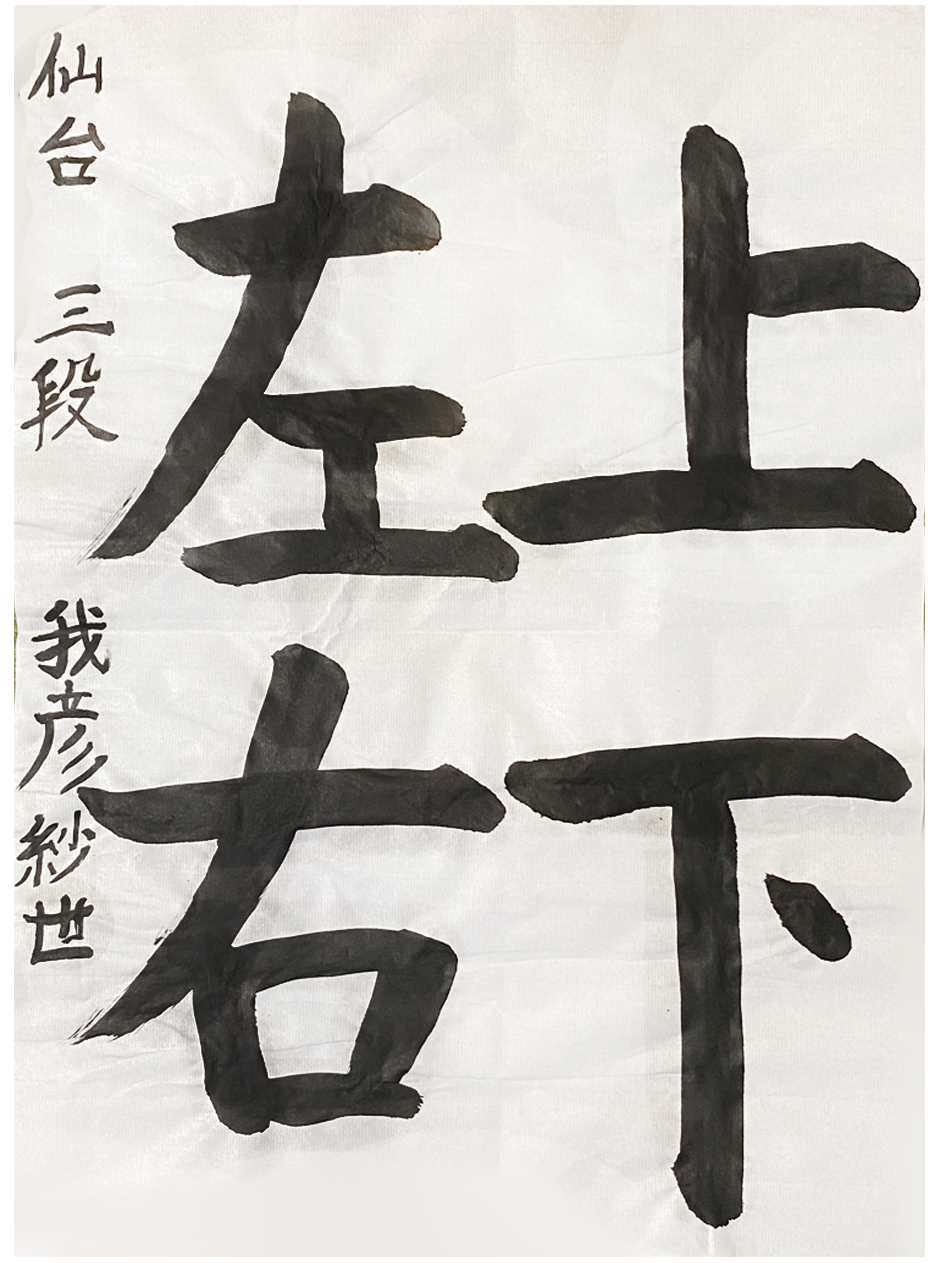 上下
左右
仙台 三段 我彦紗世